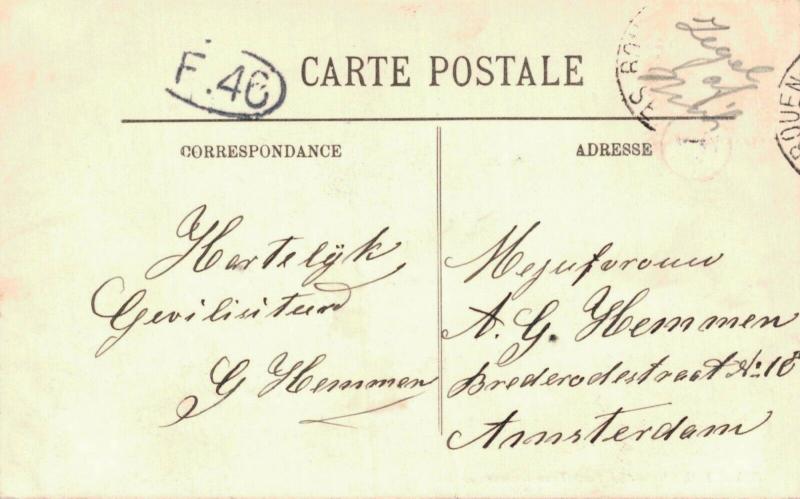 F.46
CARTE POSTALE
Zegel
af
CORRESPONDANCE
ADRESSE
ROUEN
Hartelijk
Gevilisiteerd
G Hemmen
Mejufvrouw
A. G. Hemmen
Brederodestraat No 18
Amsterdam